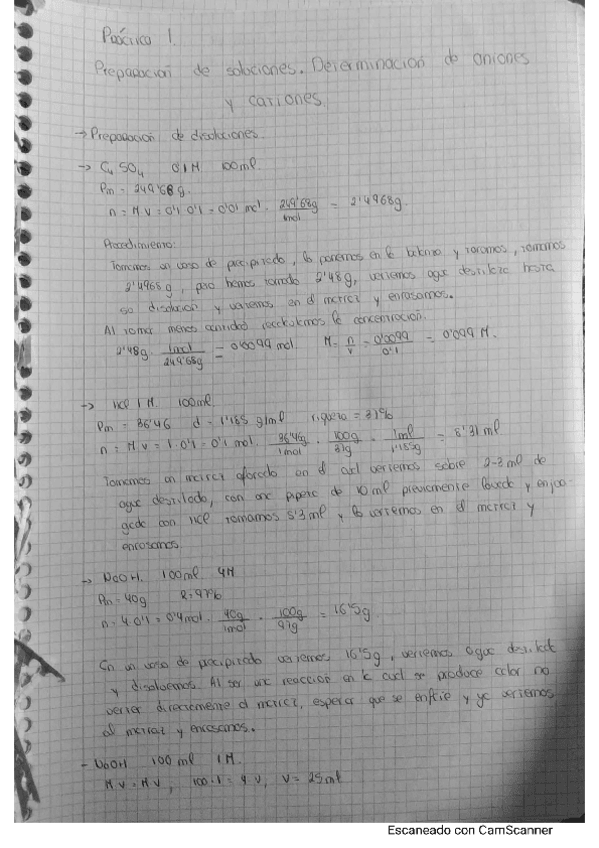 Práctica 1.
Preparación de soluciones. Determinación de aniones
y cationes.
→ Preparación de disoluciones.
→ CuSO4 0'1M 100ml.
Pm = 249'68g.
n = M·V = 0'1·0'1 = 0'01 mol · 249'68g/1mol = 2'4968g.
Procedimiento:
Tomamos un vaso de precipitado, lo ponemos en la balanza y taramos, tomamos
2'4968g, pero hemos tomado 2'48g, vertemos agua destilada hasta
su disolución y vertemos en el matraz y enrasamos.
Al tomar menos cantidad la concentración.
2'48g · 1mol/249'68g = 0'0099 mol. M = n/V = 0'0099/0'1 = 0'099 M.
→ HCl 1M. 100ml.
Pm = 36'46 d = 1'185 g/ml riqueza = 37%
n = M·V = 1·0'1 = 0'1 mol · 36'46g/1mol · 100g/37g · 1ml/1'185g = 8'31 ml
Tomamos un matraz aforado en el cual vertemos sobre 2-3 ml de
agua destilada, con una pipeta de 10 ml previamente lavada y enjua-
gada con HCl tomamos 8'3 ml y lo vertemos en el matraz y
enrasamos.
→ NaOH. 100ml 4M
Pm = 40g R = 97%
n = 4·0'1 = 0'4mol · 40g/1mol · 100g/97g = 16'5g
En un vaso de precipitado vertemos 16'5g, vertemos agua destilada
y disolvemos. Al ser una reacción en la cual se produce calor no
verter directamente al matraz, esperar que se enfríe y ya vertemos
al matraz y enrasamos.
- NaOH 100 ml 1M.
M·V = M·V, 100·1 = 4·V, V = 25ml
Escaneado con CamScanner